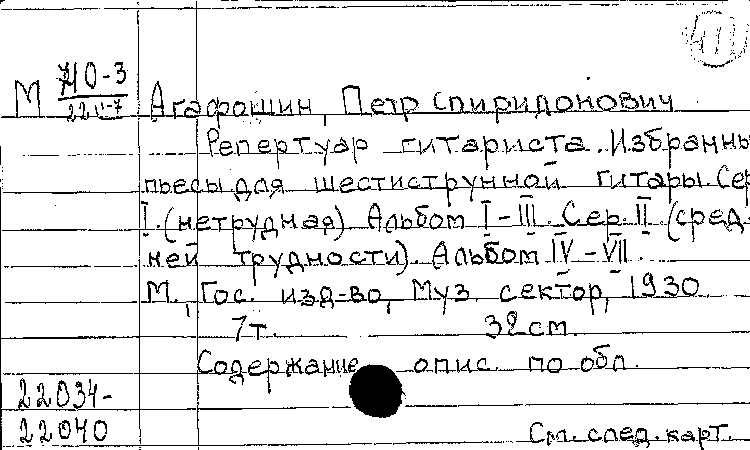 М 710-3 Агафошин, Петр Спиридонович
Репертуар гитариста. Избранны
пьесы для шестиструнной гитары. Сер
I. (нетрудная) Альбом I-III. Сер. II (сред-
ней трудности). Альбом IV-VII.
М., Гос. изд-во, Муз. сектор, 1930
7т. 32см.
Содержание опис. по обл.
22034-
22040
См. след. карт.